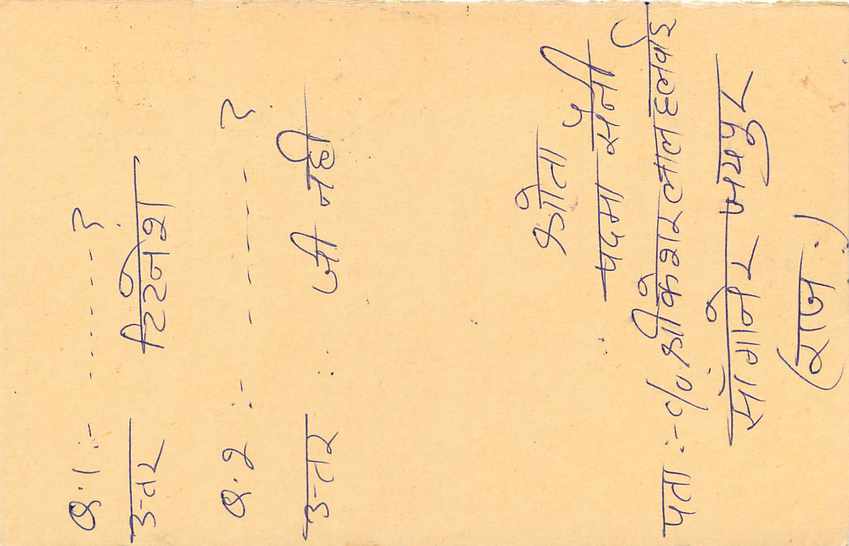 प्र.1 :- ........ ?
उत्तर टिटनेश
प्र.2 :- ------ ?
उत्तर : जी नही
श्रोता
पदमा सैनी
पता :- C/o. श्री केशर लाल हलवाई
सांगानेर जयपुर
(राज.)